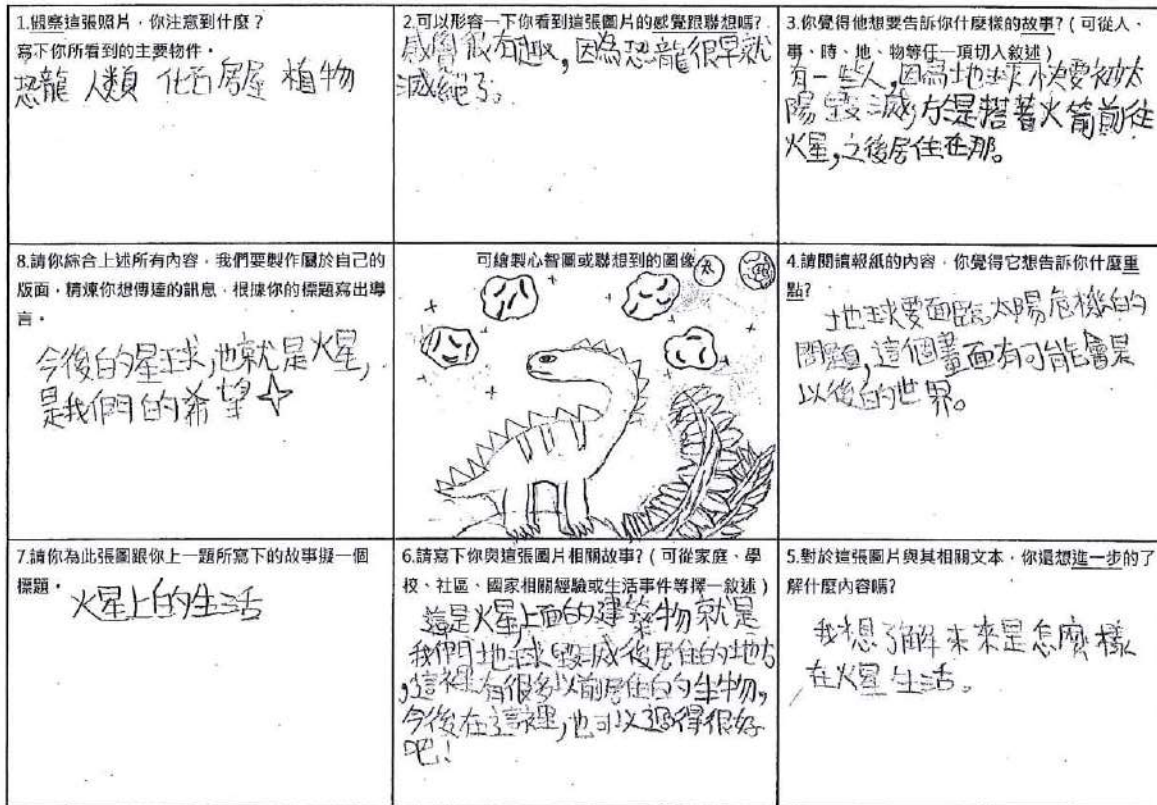 1.觀察這張照片，你注意到什麼？
寫下你所看到的主要物件。
恐龍 人類 化石 房屋 植物
2.可以形容一下你看到這張圖片的感覺跟聯想嗎?
感覺很有趣,因為恐龍很早就
滅絕了。
3.你覺得他想要告訴你什麼樣的故事?(可從人、
事、時、地、物等任一項切入敘述)
有一些人,因為地球快要被太
陽毀滅,於是搭著火箭前往
火星,之後居住在那。
8.請你綜合上述所有內容，我們要製作屬於自己的
版面，精煉你想傳達的訊息，根據你的標題寫出導
言。
今後的星球,也就是火星,
是我們的希望
可繪製心智圖或聯想到的圖像
太
陽
4.請閱讀報紙的內容，你覺得它想告訴你什麼重
點?
地球要面臨太陽危機的
問題,這個畫面有可能會是
以後的世界。
7.請你為此張圖跟你上一題所寫下的故事擬一個
標題。
火星上的生活
6.請寫下你與這張圖片相關故事?(可從家庭、學
校、社區、國家相關經驗或生活事件等擇一敘述)
這是火星上面的建築物就是
我們地球毀滅後居住的地方
,這裡有很多以前居住的生物,
今後在這裡,也可以過得很好
吧!
5.對於這張圖片與其相關文本，你還想進一步的了
解什麼內容嗎?
我想了解未來是怎麼樣
在火星生活。